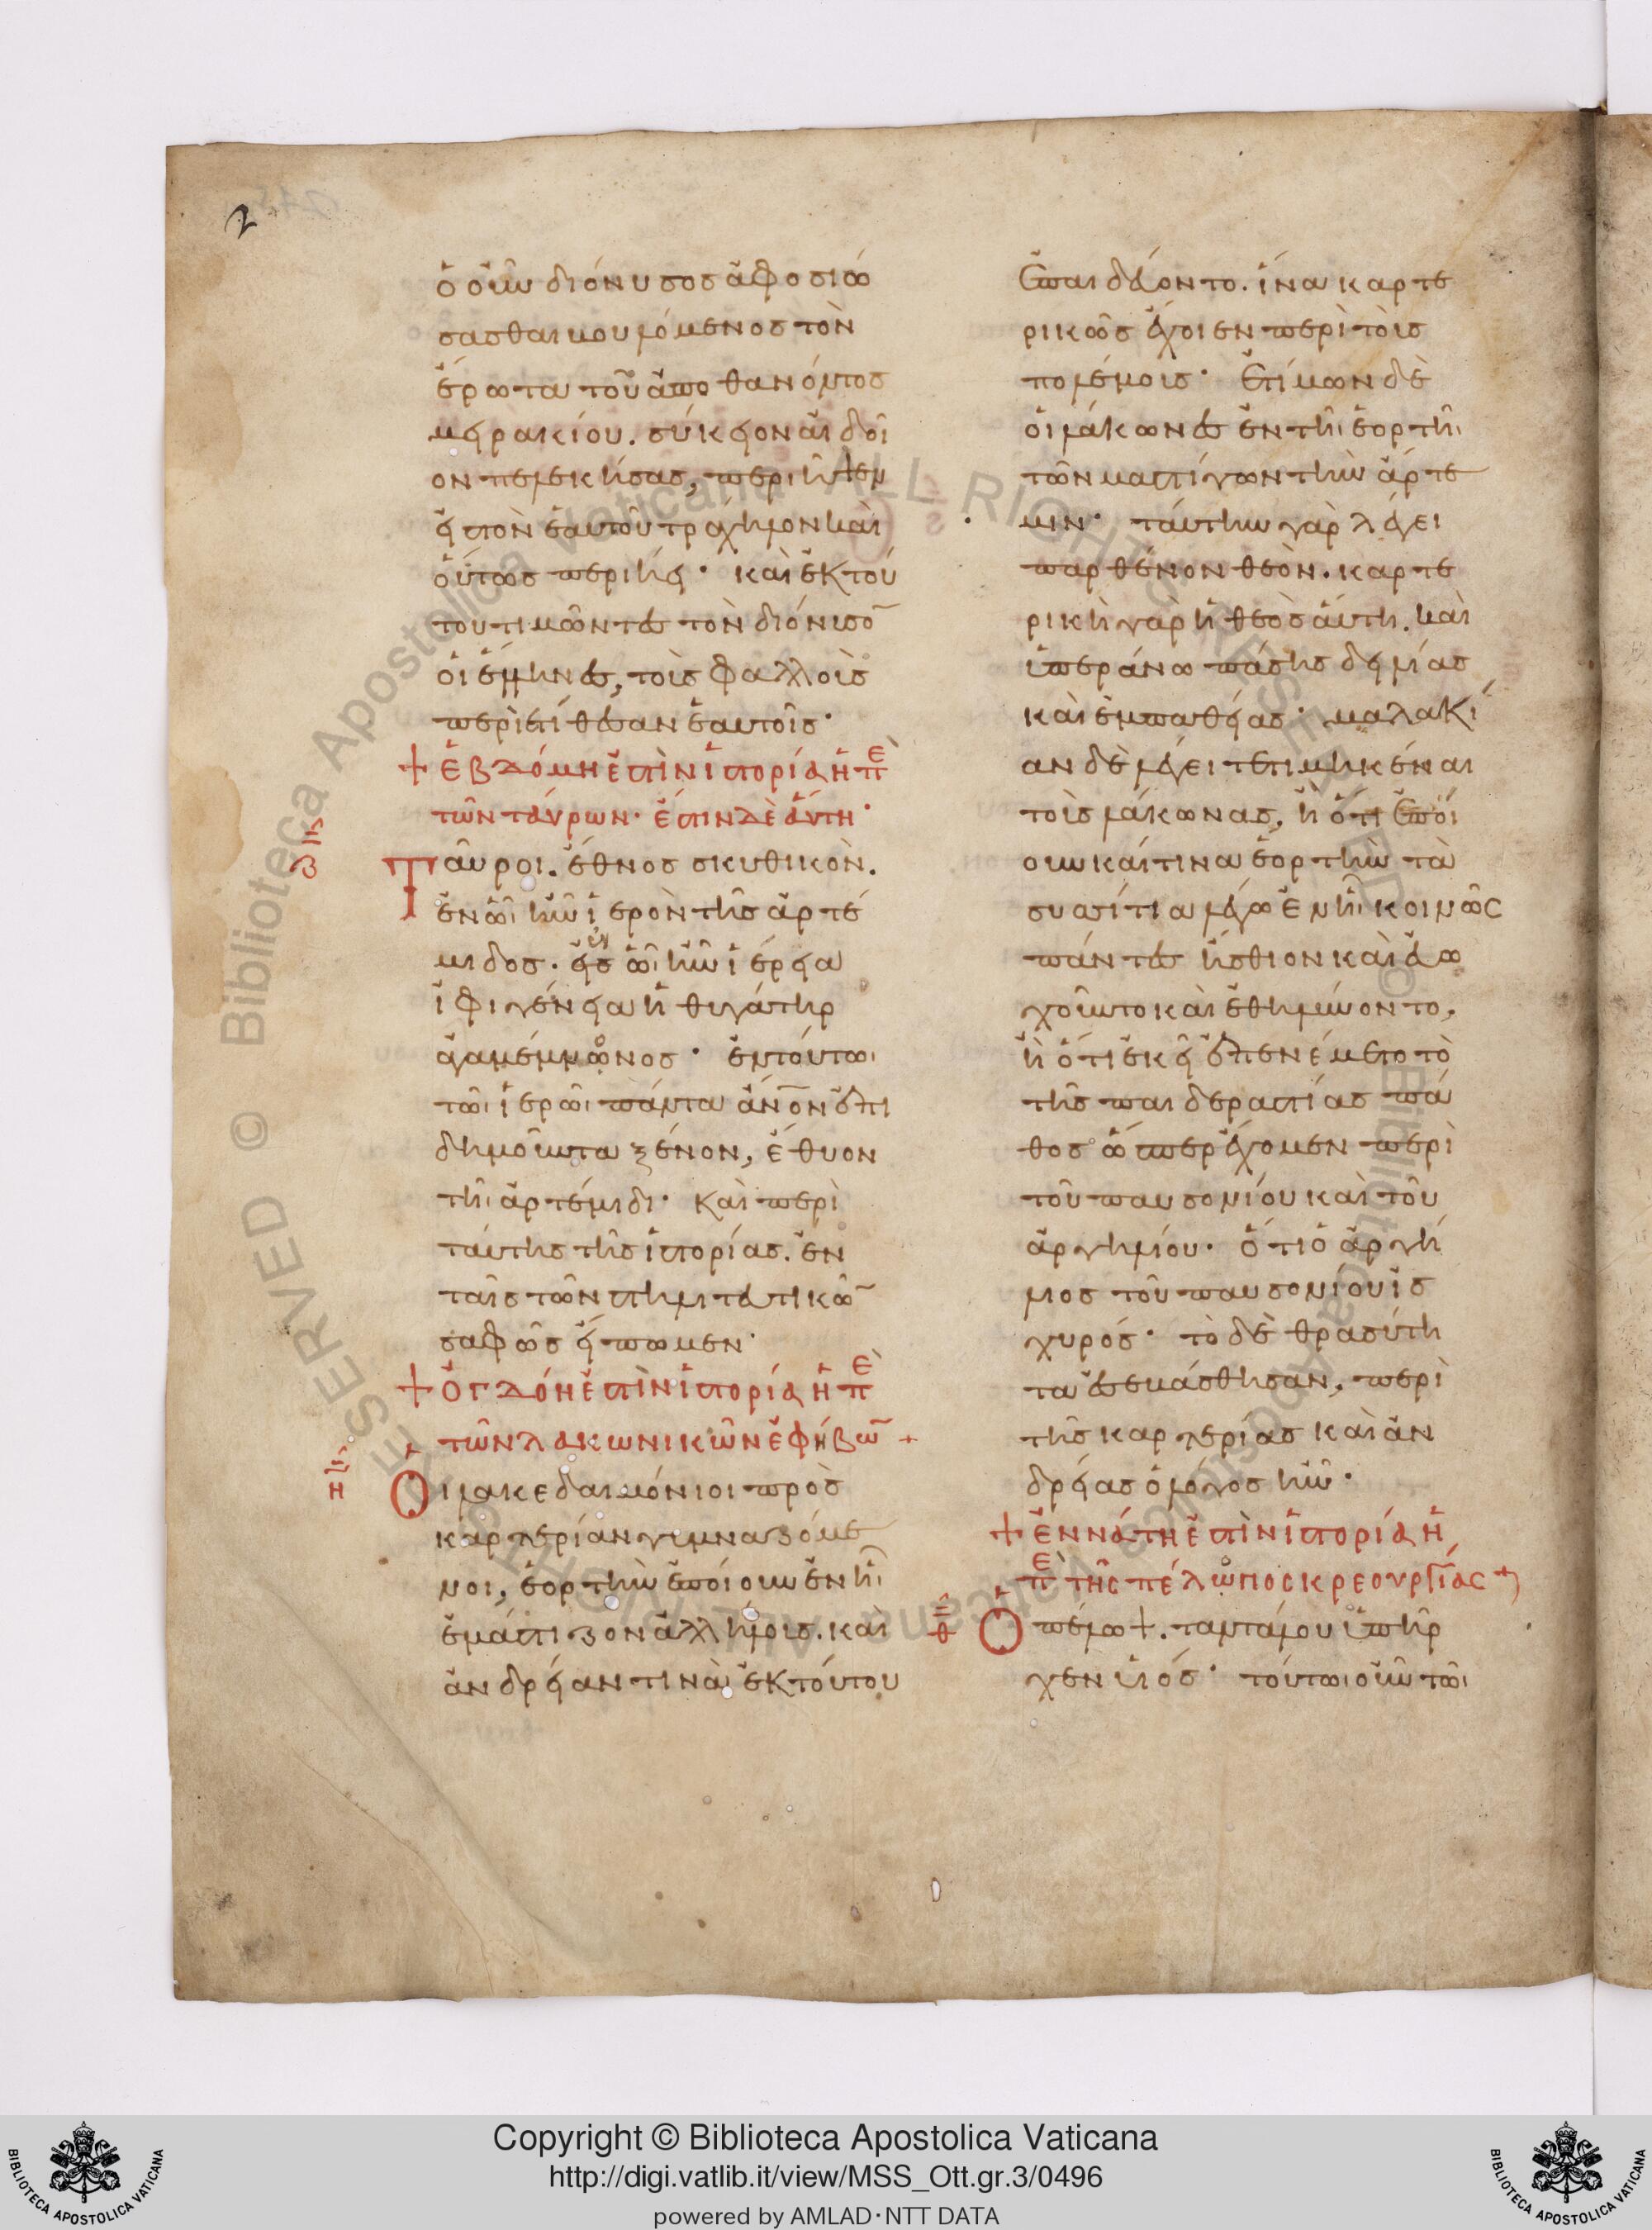 2
ὁ οὖν διόνυσος ἀφοσιώ
σασθαι βουλόμενος τὸν
ἔρωτα τοῦ ἀποθανόντος
μειρακίου. σύκειον αἰδοῖ
ον πελεκήσας, περιῆπτεν
εἰς τὸν ἑαυτοῦ τράχηλον καὶ
οὕτως περιήει· καὶ ἐκ τού
του τιμῶντες τὸν διόνισο̅
οἱ ἕλληνες, τοῖς φαλλοῖς
περιετίθεσαν ἑαυτοῖς·
+ ἑβδόμη ἐστὶν ἱστορία ἡ πε
τῶν ταύρων· ἔστιν δὲ αὕτη·
Ταῦροι. ἔθνος σκυθικὸν.
ἐν ὧι ἦν ἱερὸν τῆς ἀρτέ
μιδος. εἰς ὧι ἦν ἱέρεια
ἰφιγένεια ἡ θυγάτηρ
ἀγαμέμνωνος· ἐν τούτωι
τῶι ἱερῶι πάντα ἀν̅ον ἐπι
δημοῦντα ξένον, ἔθυον
τῆι ἀρτέμιδι· καὶ περὶ
ταύτης τῆς ἱστορίας. ἐν
ταῖς τῶν στηλιτευτικῶ̅
σαφῶς εἴπωμεν·
+ ὀγδόη ἐστὶν ἱστορία ἡ πε
τῶν λακωνικῶν ἐφήβω̅ +
Οἱ λακεδαιμόνιοι πρὸς
καρτερίαν γυμναζόμε
νοι, ἑορτὴν ἐποίουν ἐν ἧι
ἐμάστιζον ἀλλήλους. καὶ
ἀνδρείαν τινὰ ἐκ τούτου
ἐπαιδεύοντο. ἵνα καρτε
ρικῶς ἔχοιεν περὶ τοὺς
πολέμοις· ἐτίμων δὲ
οἱ λάκωνες ἐν τῆι ἑορτῆι
τῶν μαστίγων τὴν ἄρτε
μιν· ταύτην γὰρ λέγει
παρθένον θεὸν. καρτε
ρικὴ γὰρ ἡ θεὸς αὕτη. καὶ
ὑπεράνω πάσης δειλίας
καὶ ἐμπαθείας· μαλακί
αν δὲ λέγει τετιμηκέναι
τοὺς λάκωνας, ἢ ὅτι ἐποί
ουν καί τινα ἑορτὴν τὰ
συσσίτια λέγω ἐν ἧι κοινῶς
πάντες ἤσθιον καὶ εὐω
χοῦντο καὶ ἐθημύνοντο.
ἢ ὅτι ἐκεῖ ἐπενέμετο τὸ
τῆς παιδεραστίας πά
θος ὥσπερ ἔχομεν περὶ
τοῦ παυσονίου καὶ τοῦ
ἀργηλίου· ὅτι ὁ ἀργή
λιος τοῦ παυσονίου ἰσ
χυρός· τὸ δὲ θρασύτη
τα ἐσεμάσθησαν, περὶ
τῆς καρτερίας καὶ ἀν
δρείας ὁ λόγος ἦν·
+ ἐννάτη ἐστὶν ἱστορία ἡ
πε τῆς πέλωπος κρεουργίας +
Ὁ πέλοψ. ταντάλου ὑπῆρ
χεν υἱός· τούτωι οὖν τῶι
Copyright © Biblioteca Apostolica Vaticana
http://digi.vatlib.it/view/MSS_Ott.gr.3/0496
powered by AMLAD·NTT DATA
BIBLIOTECA APOSTOLICA VATICANA
BIBLIOTECA APOSTOLICA VATICANA